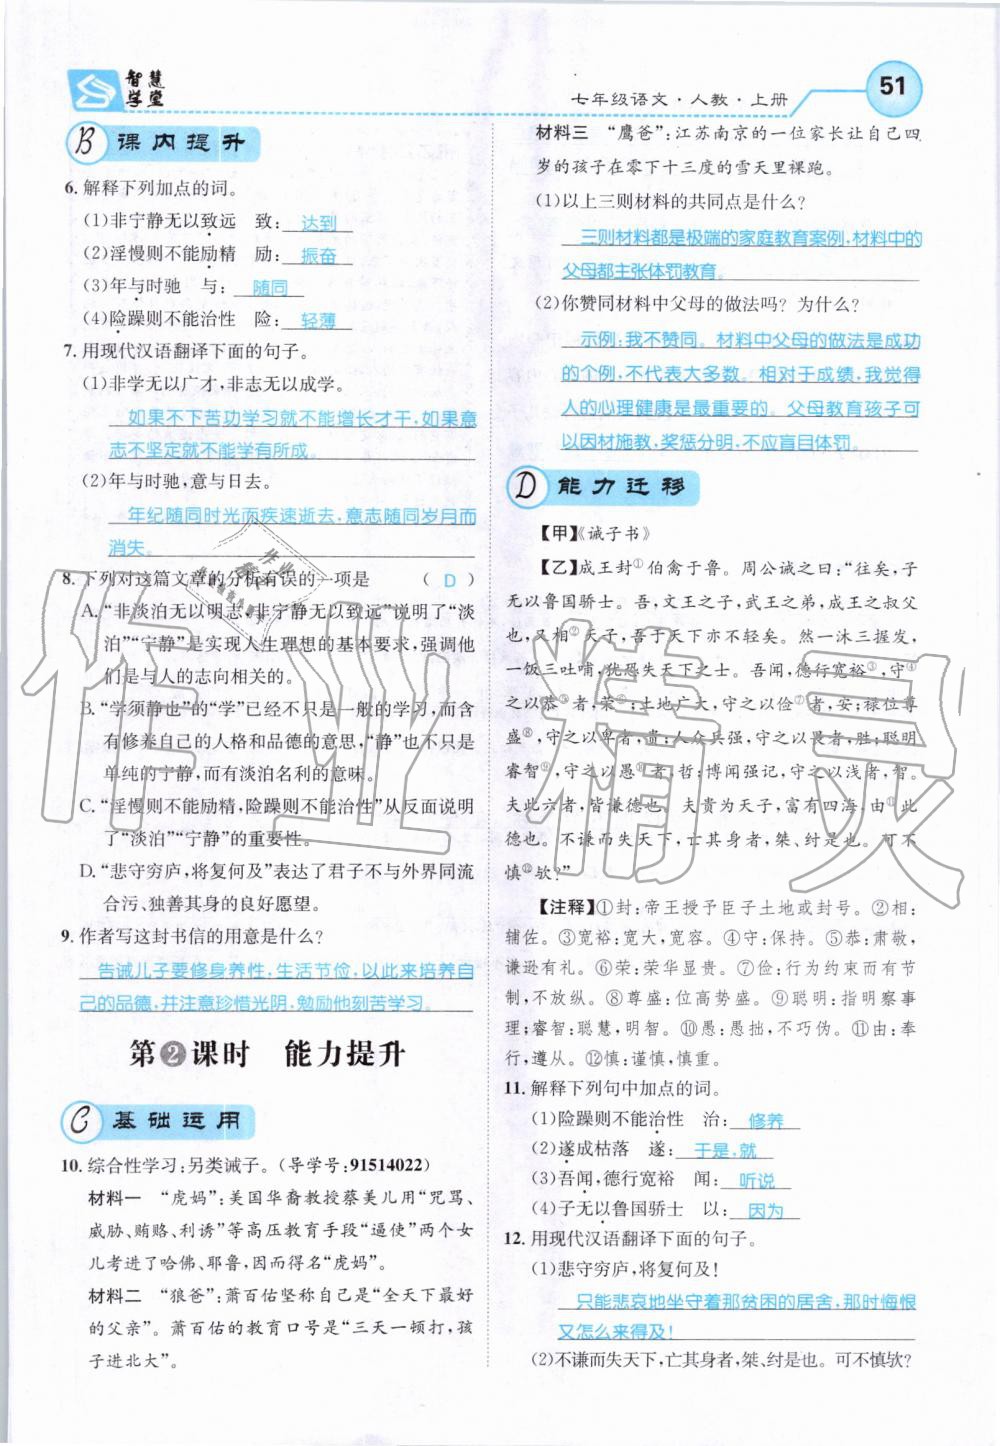 智慧学堂
七年级语文·人教·上册
51
B 课内提升
6. 解释下列加点的词。
(1)非宁静无以致远 致: 达到
(2)淫慢则不能励精 励: 振奋
(3)年与时驰 与: 随同
(4)险躁则不能治性 险: 轻薄
7. 用现代汉语翻译下面的句子。
(1)非学无以广才,非志无以成学。
如果不下苦功学习就不能增长才干,如果意
志不坚定就不能学有所成。
(2)年与时驰,意与日去。
年纪随同时光而疾速逝去,意志随同岁月而
消失。
8. 下列对这篇文章的分析有误的一项是 ( D )
A. “非淡泊无以明志,非宁静无以致远”说明了“淡
泊”“宁静”是实现人生理想的基本要求,强调他
们是与人的志向相关的。
B. “学须静也”的“学”已经不只是一般的学习,而含
有修养自己的人格和品德的意思,“静”也不只是
单纯的宁静,而有淡泊名利的意味。
C. “淫慢则不能励精,险躁则不能治性”从反面说明
了“淡泊”“宁静”的重要性。
D. “悲守穷庐,将复何及”表达了君子不与外界同流
合污、独善其身的良好愿望。
9. 作者写这封书信的用意是什么?
告诫儿子要修身养性,生活节俭,以此来培养自
己的品德,并注意珍惜光阴,勉励他刻苦学习。
第2课时 能力提升
C 基础运用
10. 综合性学习:另类诫子。(导学号:91514022)
材料一 “虎妈”:美国华裔教授蔡美儿用“咒骂、
威胁、贿赂、利诱”等高压教育手段“逼使”两个女
儿考进了哈佛、耶鲁,因而得名“虎妈”。
材料二 “狼爸”:萧百佑坚称自己是“全天下最好
的父亲”。萧百佑的教育口号是“三天一顿打,孩
子进北大”。
材料三 “鹰爸”:江苏南京的一位家长让自己四
岁的孩子在零下十三度的雪天里裸跑。
(1)以上三则材料的共同点是什么?
三则材料都是极端的家庭教育案例,材料中的
父母都主张体罚教育。
(2)你赞同材料中父母的做法吗? 为什么?
示例:我不赞同。材料中父母的做法是成功
的个例,不代表大多数。相对于成绩,我觉得
人的心理健康是最重要的。父母教育孩子可
以因材施教,奖惩分明,不应盲目体罚。
D 能力迁移
【甲】《诫子书》
【乙】成王封①伯禽于鲁。周公诫之曰:“往矣,子
无以鲁国骄士。吾,文王之子,武王之弟,成王之叔父
也,又相②天子,吾于天下亦不轻矣。然一沐三握发,
一饭三吐哺,犹恐失天下之士。吾闻,德行宽裕③,守④
之以恭⑤者,荣⑥;土地广大,守之以俭⑦者,安;禄位尊
盛⑧,守之以卑者,贵;人众兵强,守之以畏者,胜;聪明
睿智⑨,守之以愚⑩者,哲;博闻强记,守之以浅者,智。
夫此六者,皆谦德也。夫贵为天子,富有四海,由⑪此
德也。不谦而失天下,亡其身者,桀、纣是也。可不
慎⑫欤?”
【注释】①封:帝王授予臣子土地或封号。②相:
辅佐。③宽裕:宽大,宽容。④守:保持。⑤恭:肃敬,
谦逊有礼。⑥荣:荣华显贵。⑦俭:行为约束而有节
制,不放纵。⑧尊盛:位高势盛。⑨聪明:指明察事
理;睿智:聪慧,明智。⑩愚:愚拙,不巧伪。⑪由:奉
行,遵从。⑫慎:谨慎,慎重。
11. 解释下列句中加点的词。
(1)险躁则不能治性 治: 修养
(2)遂成枯落 遂: 于是,就
(3)吾闻,德行宽裕 闻: 听说
(4)子无以鲁国骄士 以: 因为
12. 用现代汉语翻译下面的句子。
(1)悲守穷庐,将复何及!
只能悲哀地坐守着那贫困的居舍,那时悔恨
又怎么来得及!
(2)不谦而失天下,亡其身者,桀、纣是也。可不慎欤?
作业精灵